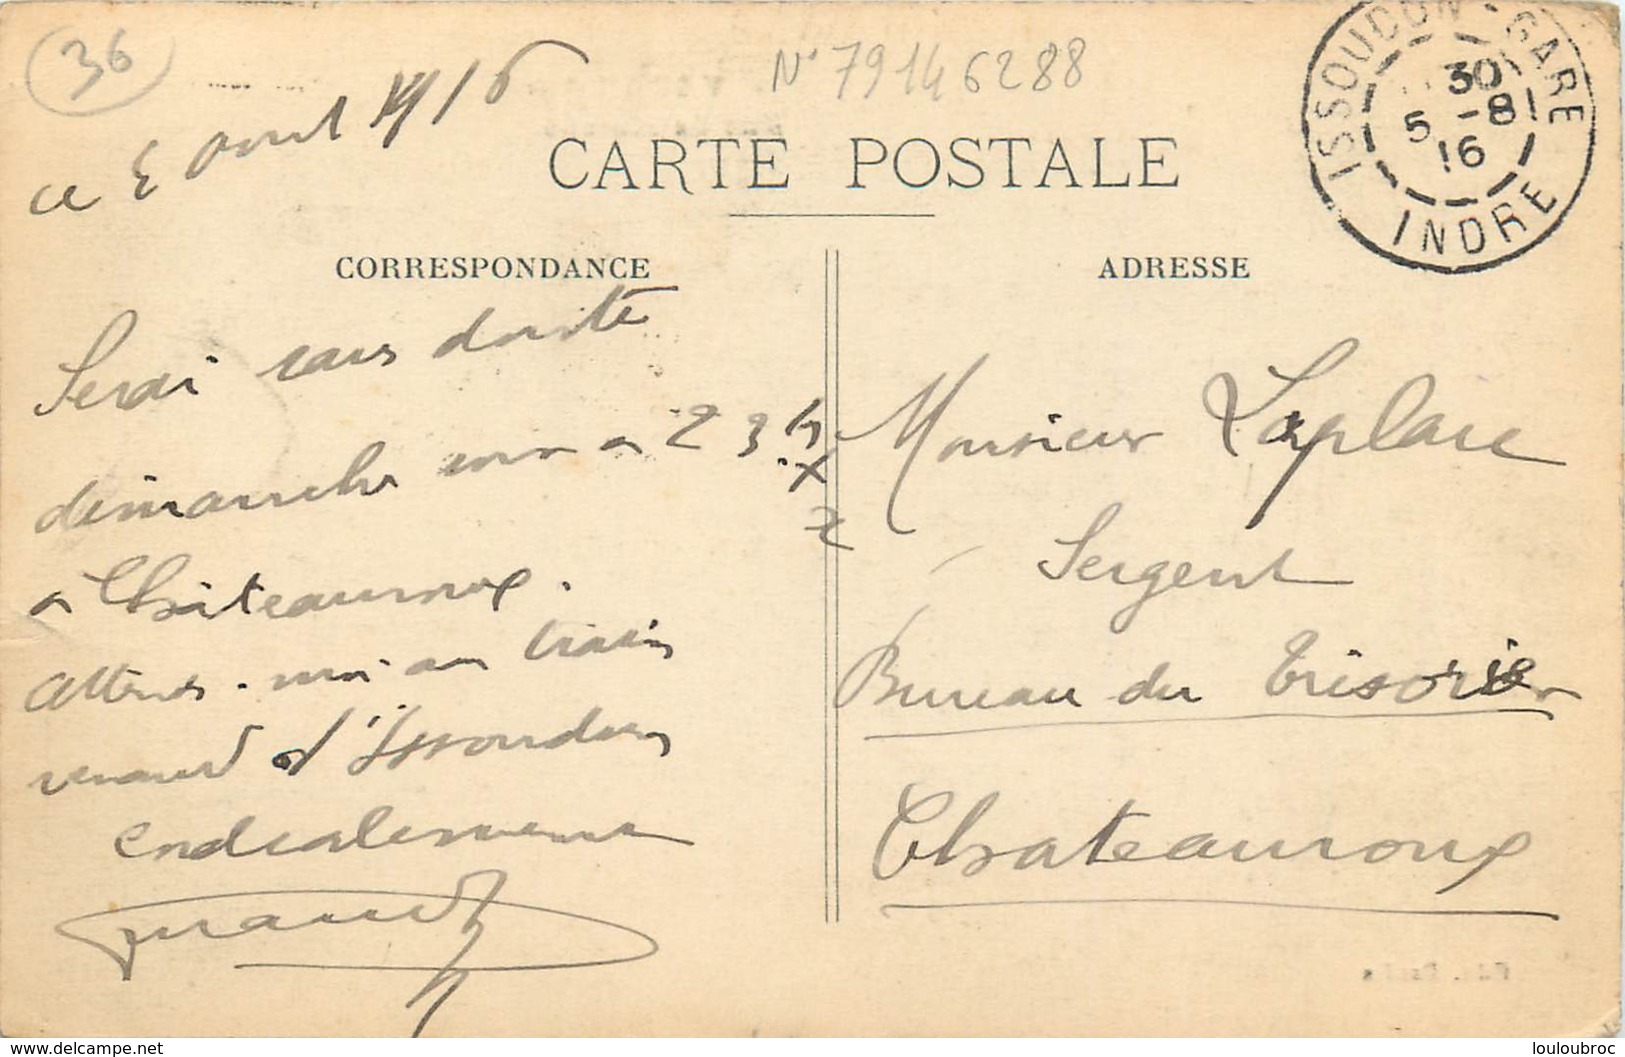 36
N° 79146288
ce 5 Aout 1916
CARTE POSTALE
ISSOUDUN - GARE
30
5 -8
16
INDRE
CORRESPONDANCE
ADRESSE
Serai sans doute
dimanche soir a 23h
a Châteauroux.
Attends-moi au train
venant d'Issoudun
Cordialement
Monsieur Laplace
Sergent
Bureau du Trésorier
Chateauroux
delcampe.net
louloubroc